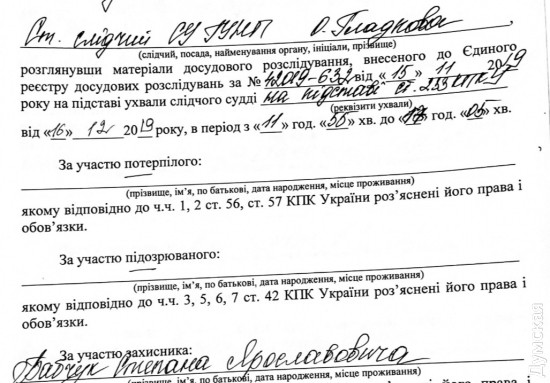 Ст. слідчий СУ ГУНП О. Гладкова,
(слідчий, посада, найменування органу, ініціали, прізвище)
розглянувши матеріали досудового розслідування, внесеного до Єдиного
реєстру досудових розслідувань за № 42019-632 від «15» 11 2019
року на підставі ухвали слідчого судді на підставі ст. 233 КПК У
(реквізити ухвали)
від «16» 12 2019 року, в період з «11» год. «55» хв. до год. «05» хв.
За участю потерпілого:
(прізвище, ім’я, по батькові, дата народження, місце проживання)
якому відповідно до ч.ч. 1, 2 ст. 56, ст. 57 КПК України роз’яснені його права і
обов’язки.
За участю підозрюваного:
(прізвище, ім’я, по батькові, дата народження, місце проживання)
якому відповідно до ч.ч. 3, 5, 6, 7 ст. 42 КПК України роз’яснені його права і
обов’язки.
За участю захисника:
Степана Ярославовича
Думская